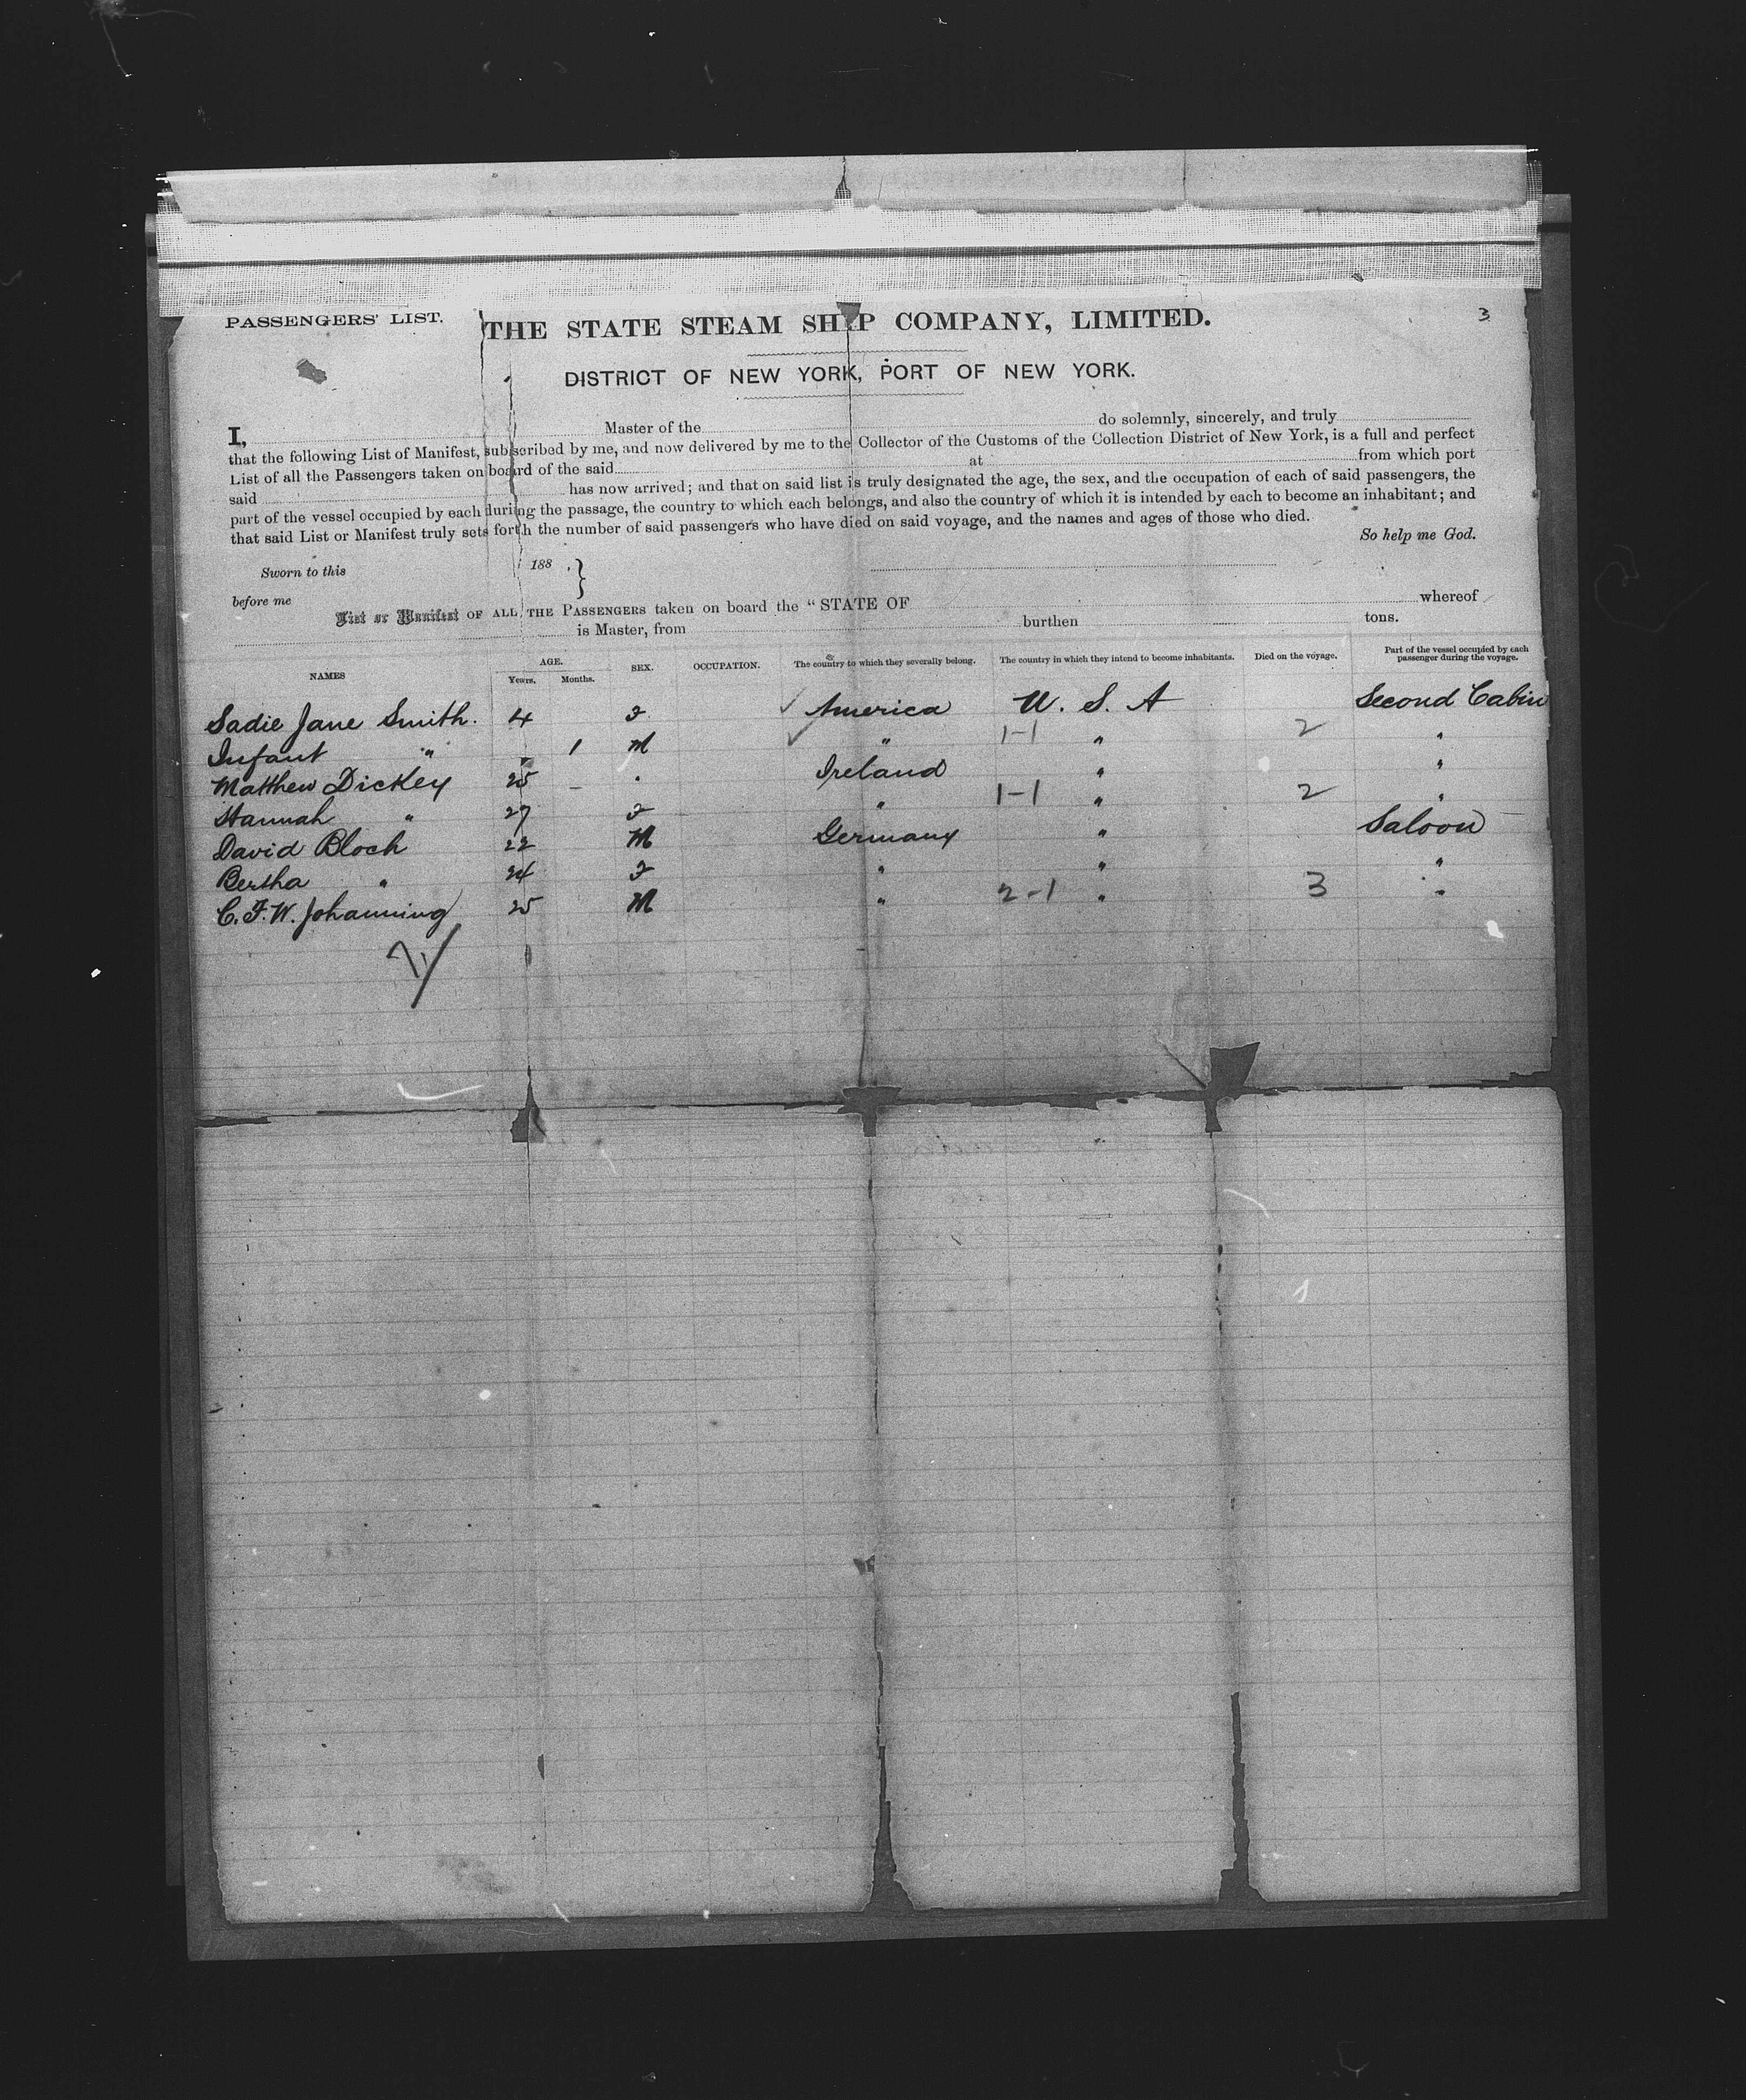 3
PASSENGERS' LIST.
THE STATE STEAM SHIP COMPANY, LIMITED.
DISTRICT OF NEW YORK, PORT OF NEW YORK.
I, Master of the do solemnly, sincerely, and truly
that the following List of Manifest, subscribed by me, and now delivered by me to the Collector of the Customs of the Collection District of New York, is a full and perfect
List of all the Passengers taken on board of the said at from which port
said has now arrived; and that on said list is truly designated the age, the sex, and the occupation of each of said passengers, the
part of the vessel occupied by each during the passage, the country to which each belongs, and also the country of which it is intended by each to become an inhabitant; and
that said List or Manifest truly sets forth the number of said passengers who have died on said voyage, and the names and ages of those who died.
So help me God.
Sworn to this 188 .}
before me
List or Manifest OF ALL THE PASSENGERS taken on board the "STATE OF whereof
is Master, from burthen tons.
NAMES AGE. Years. Months. SEX. OCCUPATION. The country to which they severally belong. The country in which they intend to become inhabitants. Died on the voyage. Part of the vessel occupied by each passenger during the voyage.
Sadie Jane Smith. 4 F ✓ America U. S. A Second Cabin
Infant " 1 M ✓ " 1-1 " 2 "
Matthew Dickey 25 - " Ireland " "
Hannah " 27 F " 1-1 " 2 "
David Bloch 22 M Germany " Saloon
Bertha " 24 F " " "
C. F. W. Johanning 25 M " 2-1 " 3 "
7/